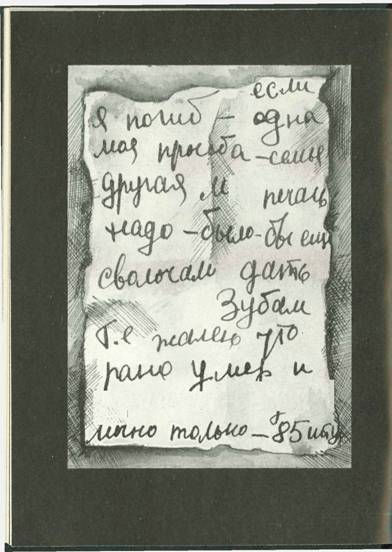 если
я погиб – одна
моя просьба – семье
другая м печаль
надо – было – бы ещё
сволочам дать
Зубам
Т.е жалею что
рано умер и
лично только – 85 шту